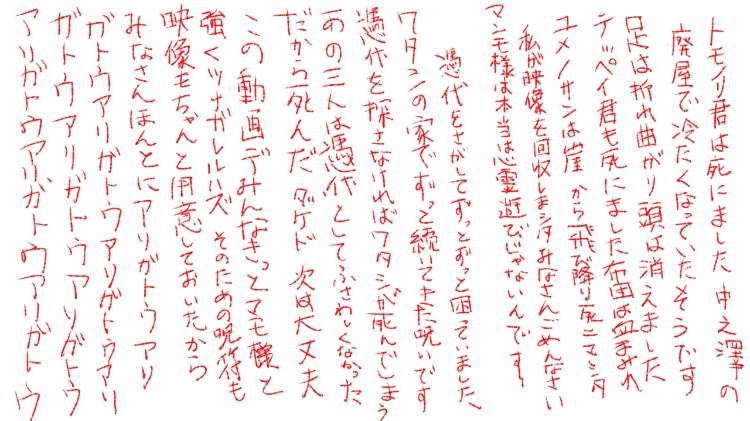 トモノリ君は死にました 中之澤の
廃屋で冷たくなっていたそうです
足は折れ曲がり頭は消えました
テッペイ君も死にました布団は血まみれ
ユメノサンは崖から飛び降り死ニマシタ
私が映像を回収しましタみなさんごめんなさい
マンモ様は本当は心霊遊びじゃないんです
憑代をさがしてずっとずっと困っていました、
ワタシの家でずっと続いてきた呪いです
憑代を探さなければワタシが死んでしまう
あの三人は憑代としてふさわしくなかった
だから死んだ ダケド 次は大丈夫
この動画デみんなきっとマモ様と
強くツナガレルハズ そのための呪符も
映像もちゃんと用意しておいたから
みなさんほんとにアリガトウアリ
ガトウアリガトウアリガトウアリ
ガトウアリガトウアリガトウ
アリガトウアリガトウアリガトウ